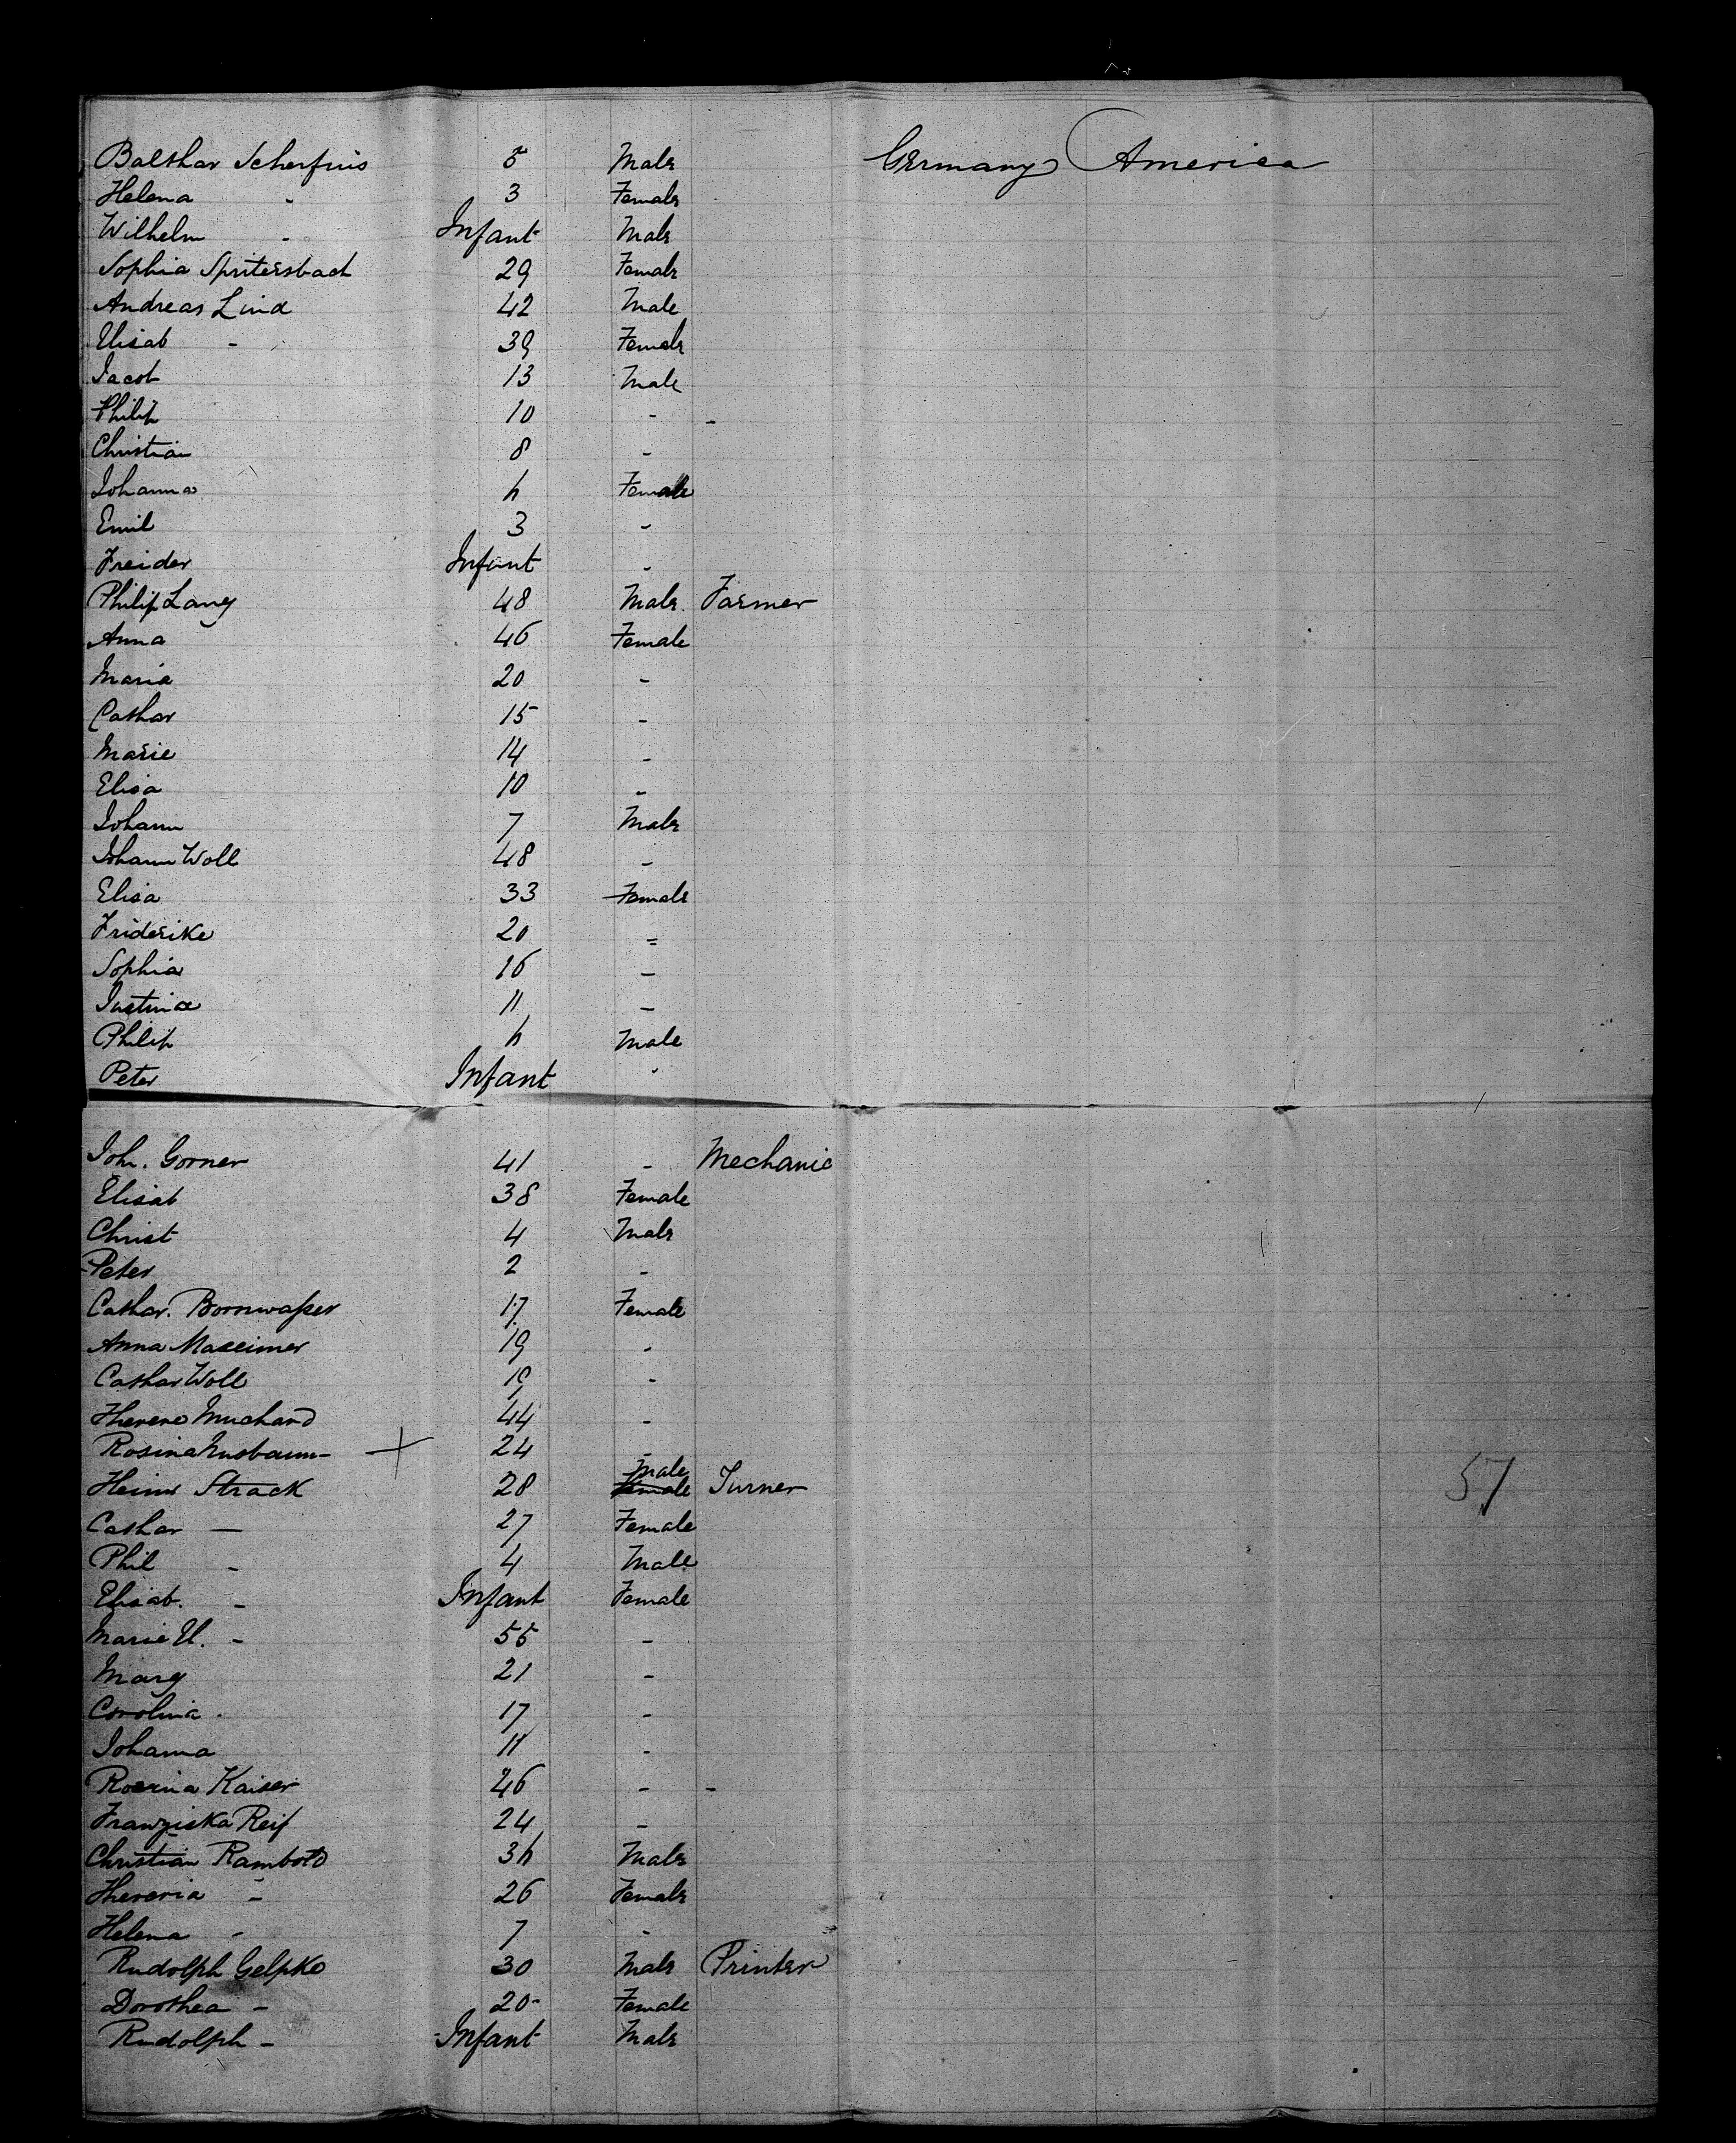 Balthar Scherfius 5 Male Germany America
Helena - 3 Female
Wilhelm - Infant Male
Sophia Spritersbach 29 Female
Andreas Lind 42 Male
Elisab - 39 Female
Jacob 13 Male
Philip 10 - -
Christian 8 -
Johanna 6 Female
Emil 3 -
Freider Infant -
Philip Lang 48 Male Farmer
Anna 46 Female
Maria 20 -
Cathar 15 -
Marie 14 -
Elisa 10 -
Johann 7 Male
Johann Woll 48 -
Elisa 33 Female
Friderike 20 =
Sophia 16 -
Justina 11 -
Philip 6 Male
Peter Infant -
Joh. Gorner 41 - Mechanic
Elisab 38 Female
Christ 4 Male
Peter 2 -
Cathar. Bornwaßer 17 Female
Anna 19 -
Cathar Woll 19 -
Muchard 44 -
Rosina Nusbaum - + 24 -
Heinr Strack 28 Male Turner 57
Cathar - 27 Female
Phil - 4 Male
Elisab. - Infant Female
Marie El. - 55 -
Marg 21 -
Carolina 17 -
Johanna 11 -
Rosina Kaiser 26 - -
Franziska Reif 24 -
Christian Rambold 36 Male
- 26 Female
Helena - 7 -
Rudolph Gelpke 30 Male Printer
Dorothea - 20 - Female
Rudolph - Infant Male